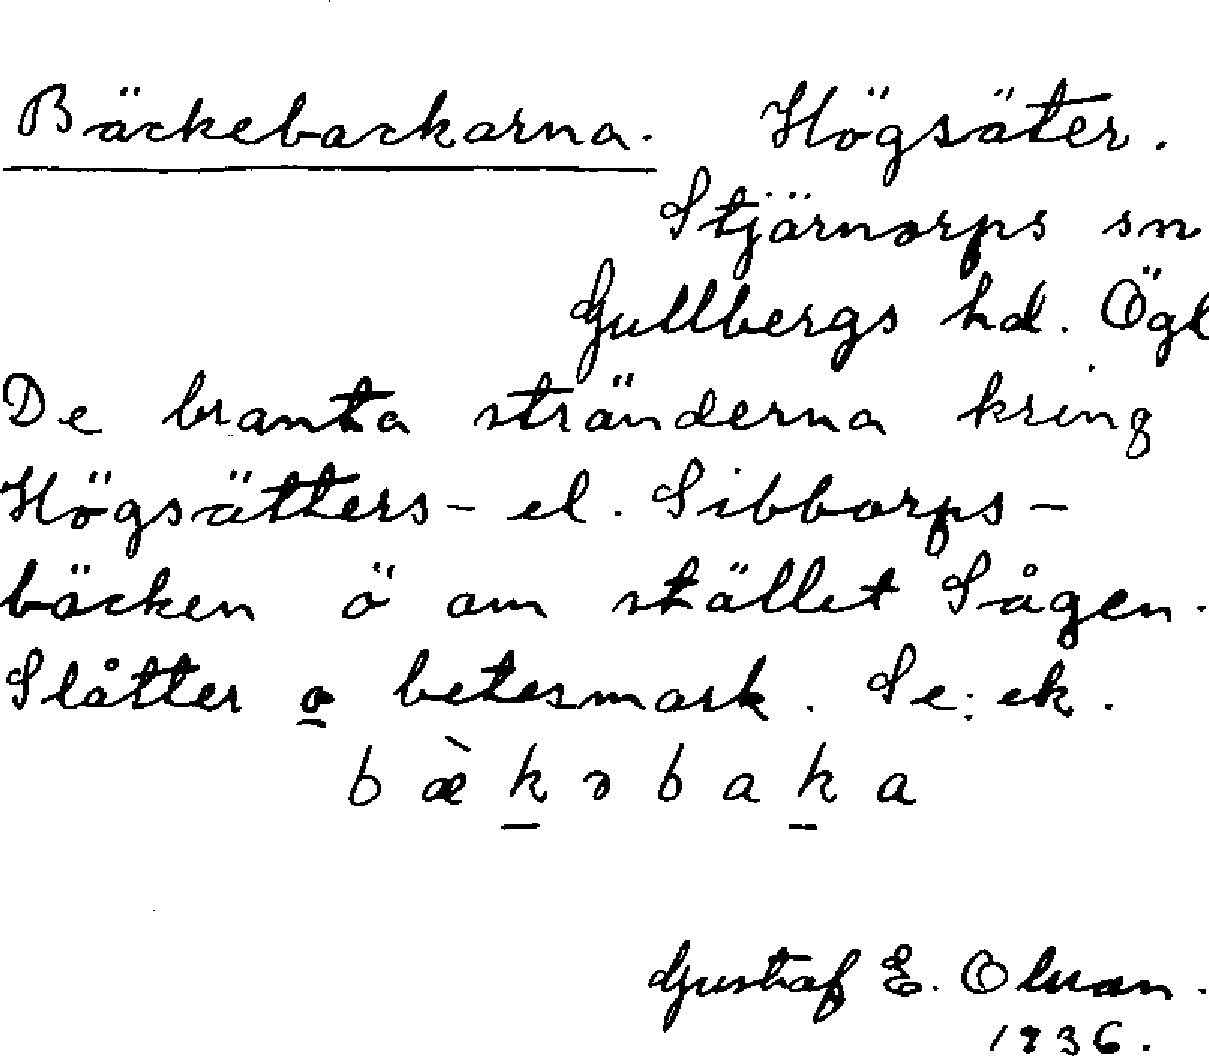 Bäckebackarna. Högsäter.
Stjärnorps sn
Gullbergs hd. Ögl
De branta stränderna kring
Högsätters- el. Sibborps-
bäcken ö om stället Sågen.
Slåtter o betesmark. Se: ek.
bæ̀k̲ɔbak̲a
Gustaf E. Olsson.
1936.